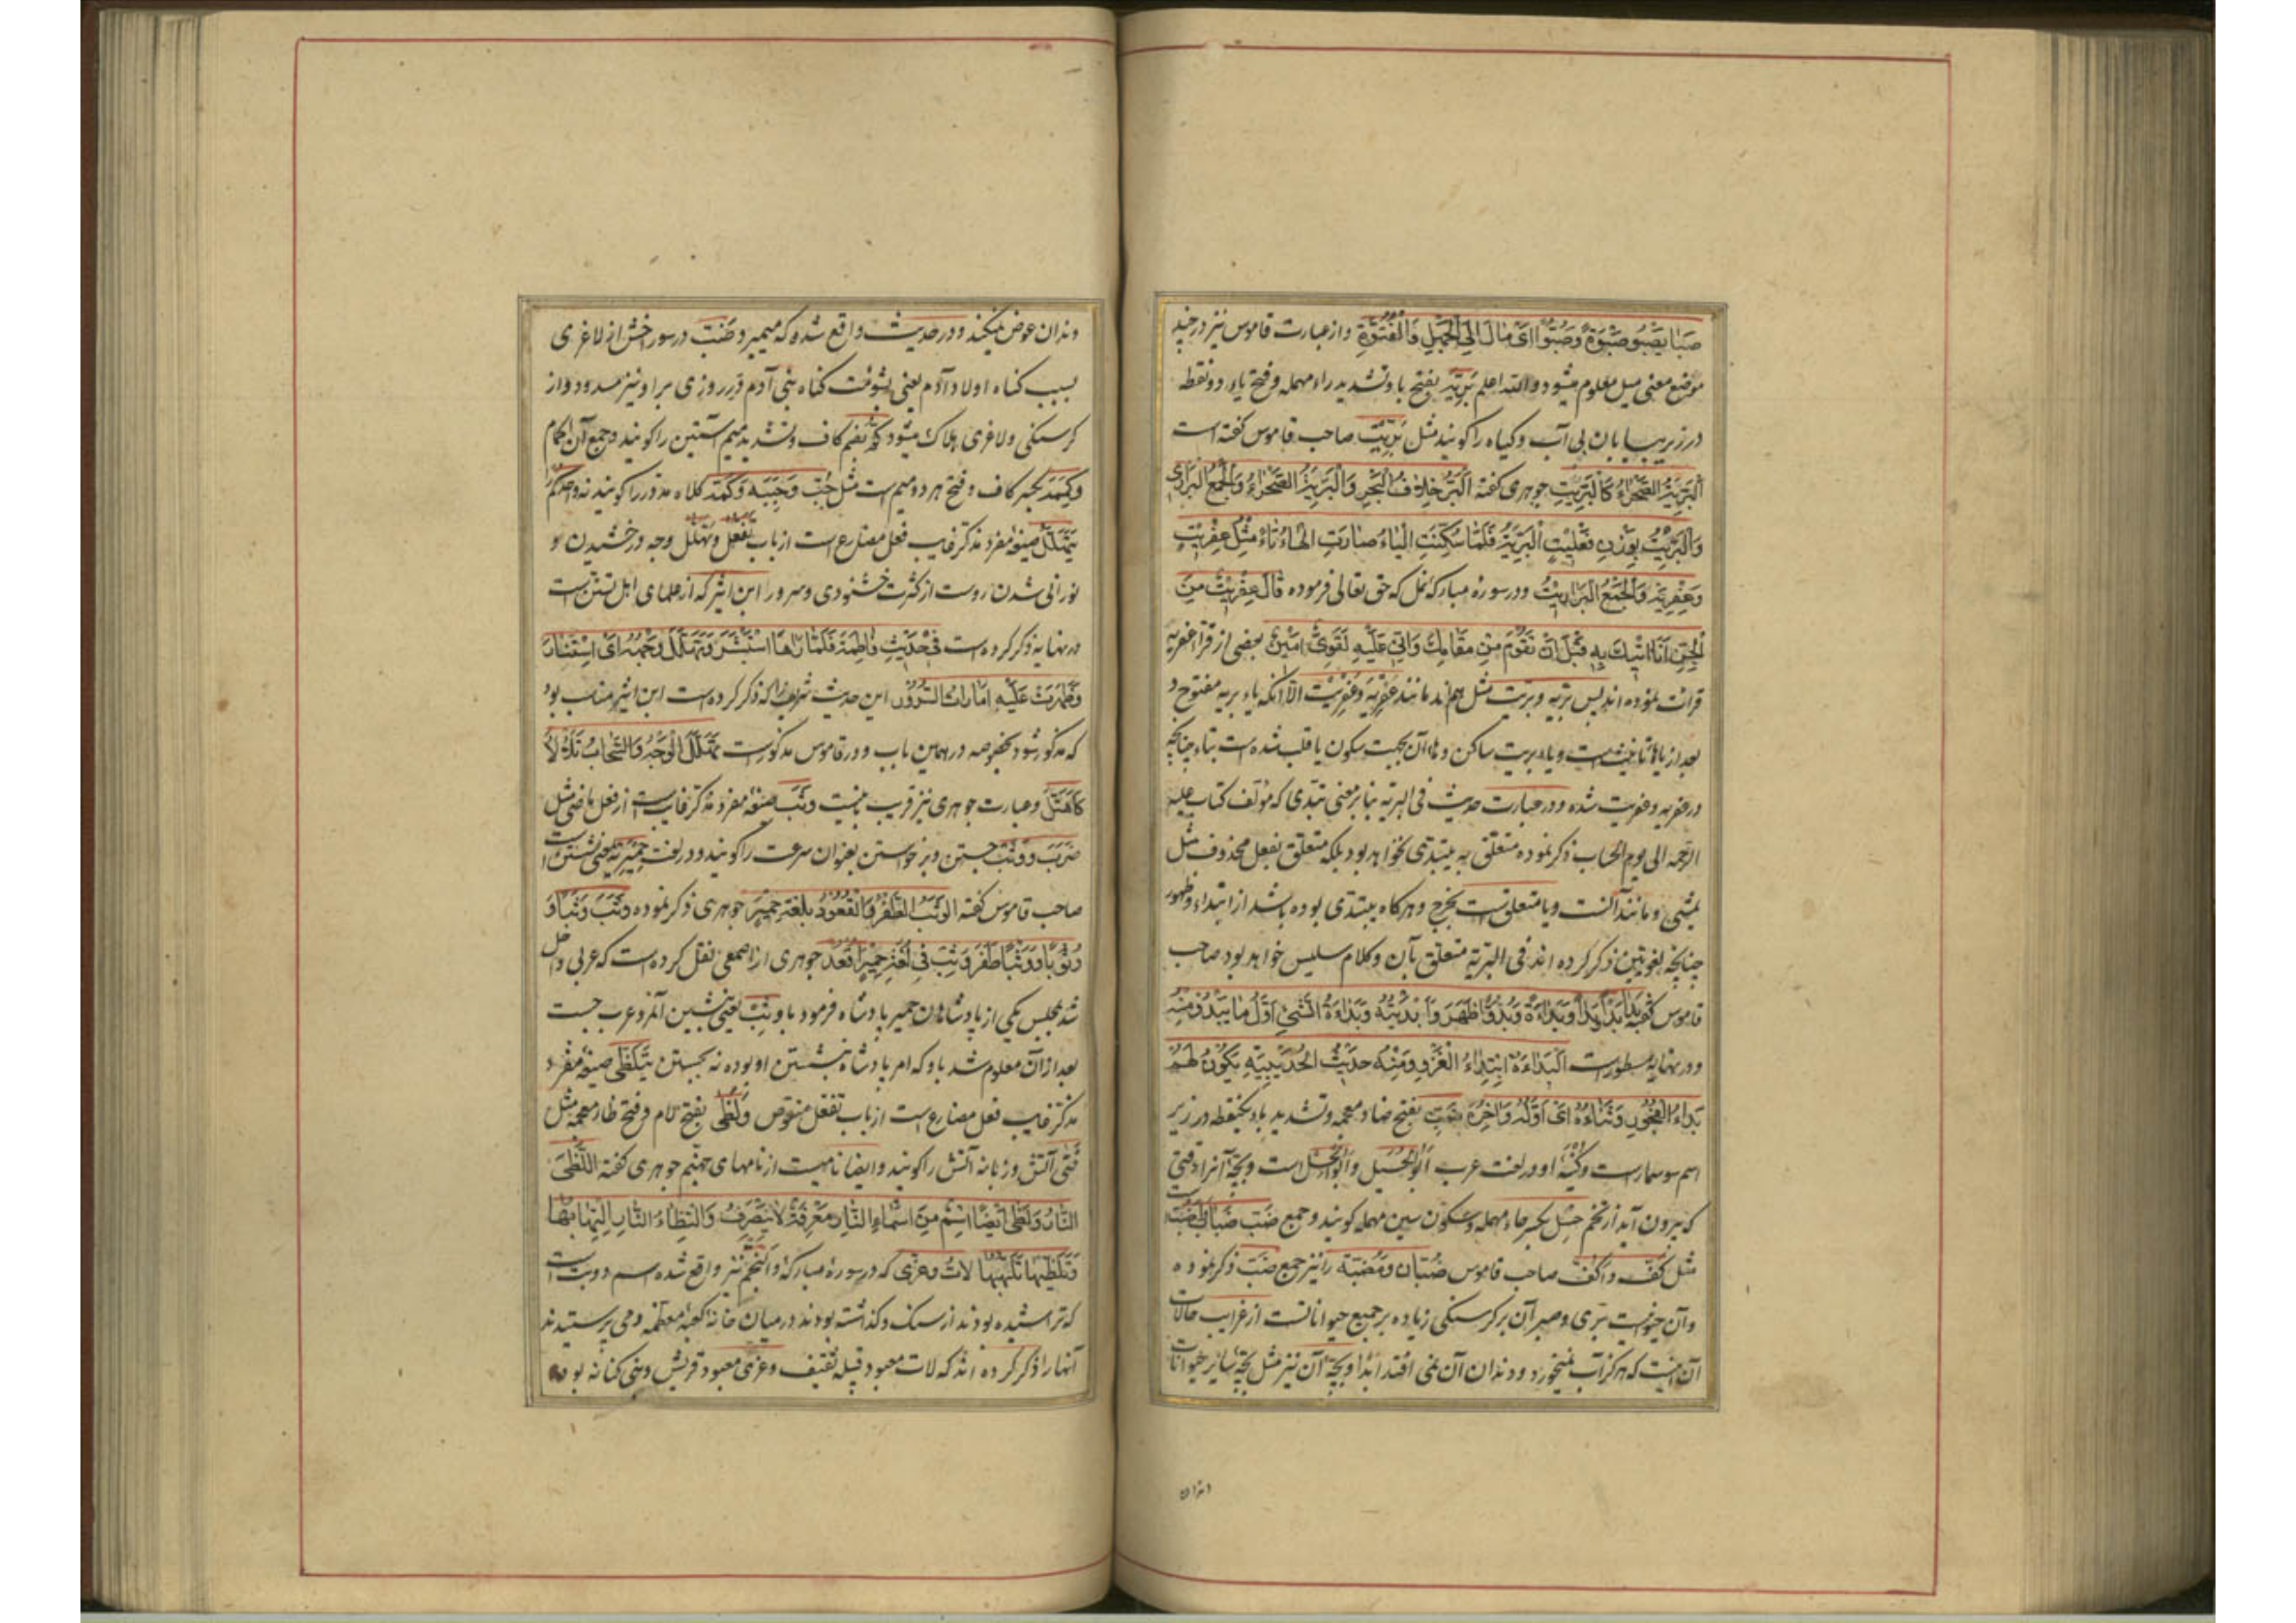 صَبا یَصْبُو صَبْوَةً وَصُبُوّاً اَیْ مالَ اِلَی الْجَهْلِ وَالْفُتُوَّةِ واز عبارت قاموس نیز در چند
موضع معنی میل معلوم میشود والله اعلم بَرِّیَّه بفتح با وتشدید راء مهمله وفتح یاء دو نقطه
در زیر بیابان بی آب وکیاه را کویند مثل بَرِّیْت صاحب قاموس کفته است
اَلْبَرِّیَّةُ الصَّحْراءُ کَالْبَرِّیتِ جوهری کفته اَلْبَرُّ خِلافُ الْبَحْرِ وَالْبَرِّیَّةُ الصَّحْراءُ وَالْجَمْعُ الْبَراری
وَالْبَرِّیتُ بِوَزْنِ فَعْلِیتٍ اَلْبَرِّیَّةُ فَلَمّا سُکِّنَتِ الْیاءُ صارَتِ الْهاءُ تاءً مِثْلُ عِفْرِیتٍ
وَعِفْرِیَةٍ وَالْجَمْعُ الْبَرارِیتُ ودر سورۀ مبارکۀ نمل که حق تعالی فرموده قالَ عِفْرِیتٌ مِنَ
الْجِنِّ اَنَا اتِیکَ بِهِ قَبْلَ اَنْ تَقُومَ مِنْ مَقامِکَ وَاِنّی عَلَیْهِ لَقَوِیٌّ اَمینٌ بعضی از قرّا عفریه
قرائت نموده اند پس بریّه وبرّیت مثل هم اند مانند عِفْرِیَه وعِفْرِیْت الّا آنکه یاء بریه مفتوح و
بعد از یا هاء تانیث است ویاء بریت ساکن وهاء آن بجهت سکون یا قلب شده است بتاء چنانچه
در عفریه وعفریت شده ودر عبارت حدیث فی البریّه بنا بر معنی تبتدی که مؤلف کتاب علیه
الرحمه الی یوم الحساب ذکر نموده متعلّق به یبتدی نخواهد بود بلکه متعلق بفعل محذوف مثل
یمشی ومانند آنست ویا متعلق است بخرج وهرکاه یبتدی بوده باشد از ابتداء وظهور
چنانچه لغویّین ذکر کرده اند فی البرّیّة متعلق بآن وکلام سلیس خواهد بود صاحب
قاموس کفته بَدا بَدْواً وَبُدُوّاً وَبَداءَةً ظَهَرَ وَاَبْدَیْتُهُ وَبَداءَةُ الشَّیْ اَوَّلُ ما یَبْدُو مِنْهُ
ودر نهایه مسطور است اَلْبَداءَةُ اِبْتِداءُ الْغَزْوِ وَمِنْهُ حَدیثُ الْحُدَیْبِیَّةِ یَکُونُ لَهُمْ
بَداءُ الْفُجُورِ وَثَناءُهُ اَیْ اَوَّلُهُ وَاخِرُهُ ضَبّ بفتح ضاد معجمه وتشدید باء یکنقطه در زیر
اسم سوسمار است وکُنْیَۀ او در لغت عرب اَبُو الْحُسَیْل وَاَبُو الْحِسْل است وبچۀ آنرا وقتی
که بیرون آید از تخم حِسْل بکسر حاء مهمله وسکون سین مهمله کویند وجمع ضَبّ ضِباب وَاَضُبّ است
مثل کَفّ واَکُفّ صاحب قاموس ضُبّان ومَضَبّة را نیز جمع ضَبّ ذکر نموده
وآن حیوانیست برّی وصبر آن بر کرسنکی زیاده بر جمیع حیواناتست از غرایب حالات
آن اینست که هرکز آب نمیخورد ودندان آن نمی افتد ابداً وبچۀ آن نیز مثل بچۀ سایر حیوانات
دندان
دندان عوض نمیکند ودر حدیث واقع شده که میمیرد ضَبّ در سوراخش از لاغری
بسبب کناه اولاد آدم یعنی بشومت کناه بنی آدم در روزی بر او نیز مسدود واز
کرسنکی ولاغری هلاک میشود کُمّ بضم کاف وتشدید میم آستین را کویند وجمع آن اَکمام
وکِمَمَه بکسر کاف وفتح هر دو میم است مثل حُبّ وحِبَبَه وکُمَّه کلاه مدوّر را کویند
یَتَهَلَّلُ صیغۀ مفرد مذکر غایب فعل مضارع است از باب تَفَعُّل وتَهَلُّل وجه درخشیدن و
نورانی شدن روست از کثرت خشنودی وسرور ابن اثیر که از علمای اهل تسنن است
در نهایه ذکر کرده است فی حَدیثِ فاطِمَةَ فَلَمّا رَاها اسْتَبْشَرَ وَتَهَلَّلَ وَجْهُهُ اَیْ اِسْتَنارَ
وَظَهَرَتْ عَلَیْهِ اَماراتُ السُّرُورِ این حدیث شریف را که ذکر کرده است ابن اثیر مناسب بود
که مذکور شود بخصوصه در همین باب ودر قاموس مذکور است تَهَلَّلَ الْوَجْهُ وَالسَّحابُ تَلَاْلَاَ
کَاهْتَلَّ وعبارت جوهری نیز قریب باینست وَثَبَ صیغۀ مفرد مذکر غایبست از فعل ماضی مثل
ضَرَبَ ووَثْب جستن وبر خواستن بعنوان سرعت را کویند ودر لغت حِمْیَر بمعنی نشستن است
صاحب قاموس کفته الوَثْبُ الطَّفْرُ وَالْقُعُودُ بِلُغَةِ حِمْیَرَ جوهری ذکر نموده وَثَبَ وَثْباً وَ
وُثُوباً وَوَثَباناً طَفَرَ وَثِبْ فی لُغَةِ حِمْیَرَ اُقْعُدْ جوهری از اصمعی نقل کرده است که عربی داخل
شد بمجلس یکی از پادشاهان حمیر پادشاه فرمود باو ثِبْ یعنی بنشین آنمرد عرب جست
بعد از آن معلوم شد باو که امر پادشاه بنشستن او بوده نه بجستن یَتَلَظّی صیغۀ مفرد
مذکر غایب فعل مضارع است از باب تفعّل منقوص ولَظی بفتح لام وفتح ظاء معجمه مثل
فَتی آتش وزبانه آتش را کویند وایضا نامیست از نامهای جهنم جوهری کفته اللَّظی
النّارُ وَلَظی اَیْضاً اِسْمٌ مِنْ اَسْماءِ النّارِ مَعْرِفَةٌ لا یَنْصَرِفُ وَالْتِظاءُ النّارِ اِلْتِهابُها
وَتَلَظّیها تَلَهُّبُها لات وعزّی که در سورۀ مبارکۀ والنجم نیز واقع شده اسم دو بت است
که تراشیده بودند از سنک وکذاشته بودند در میان خانۀ کعبۀ معظّمه ومی پرستیدند
آنها را ذکر کرده اند که لات معبود قبیلۀ ثقیف وعزّی معبود قریش وبنی کنانه بوده